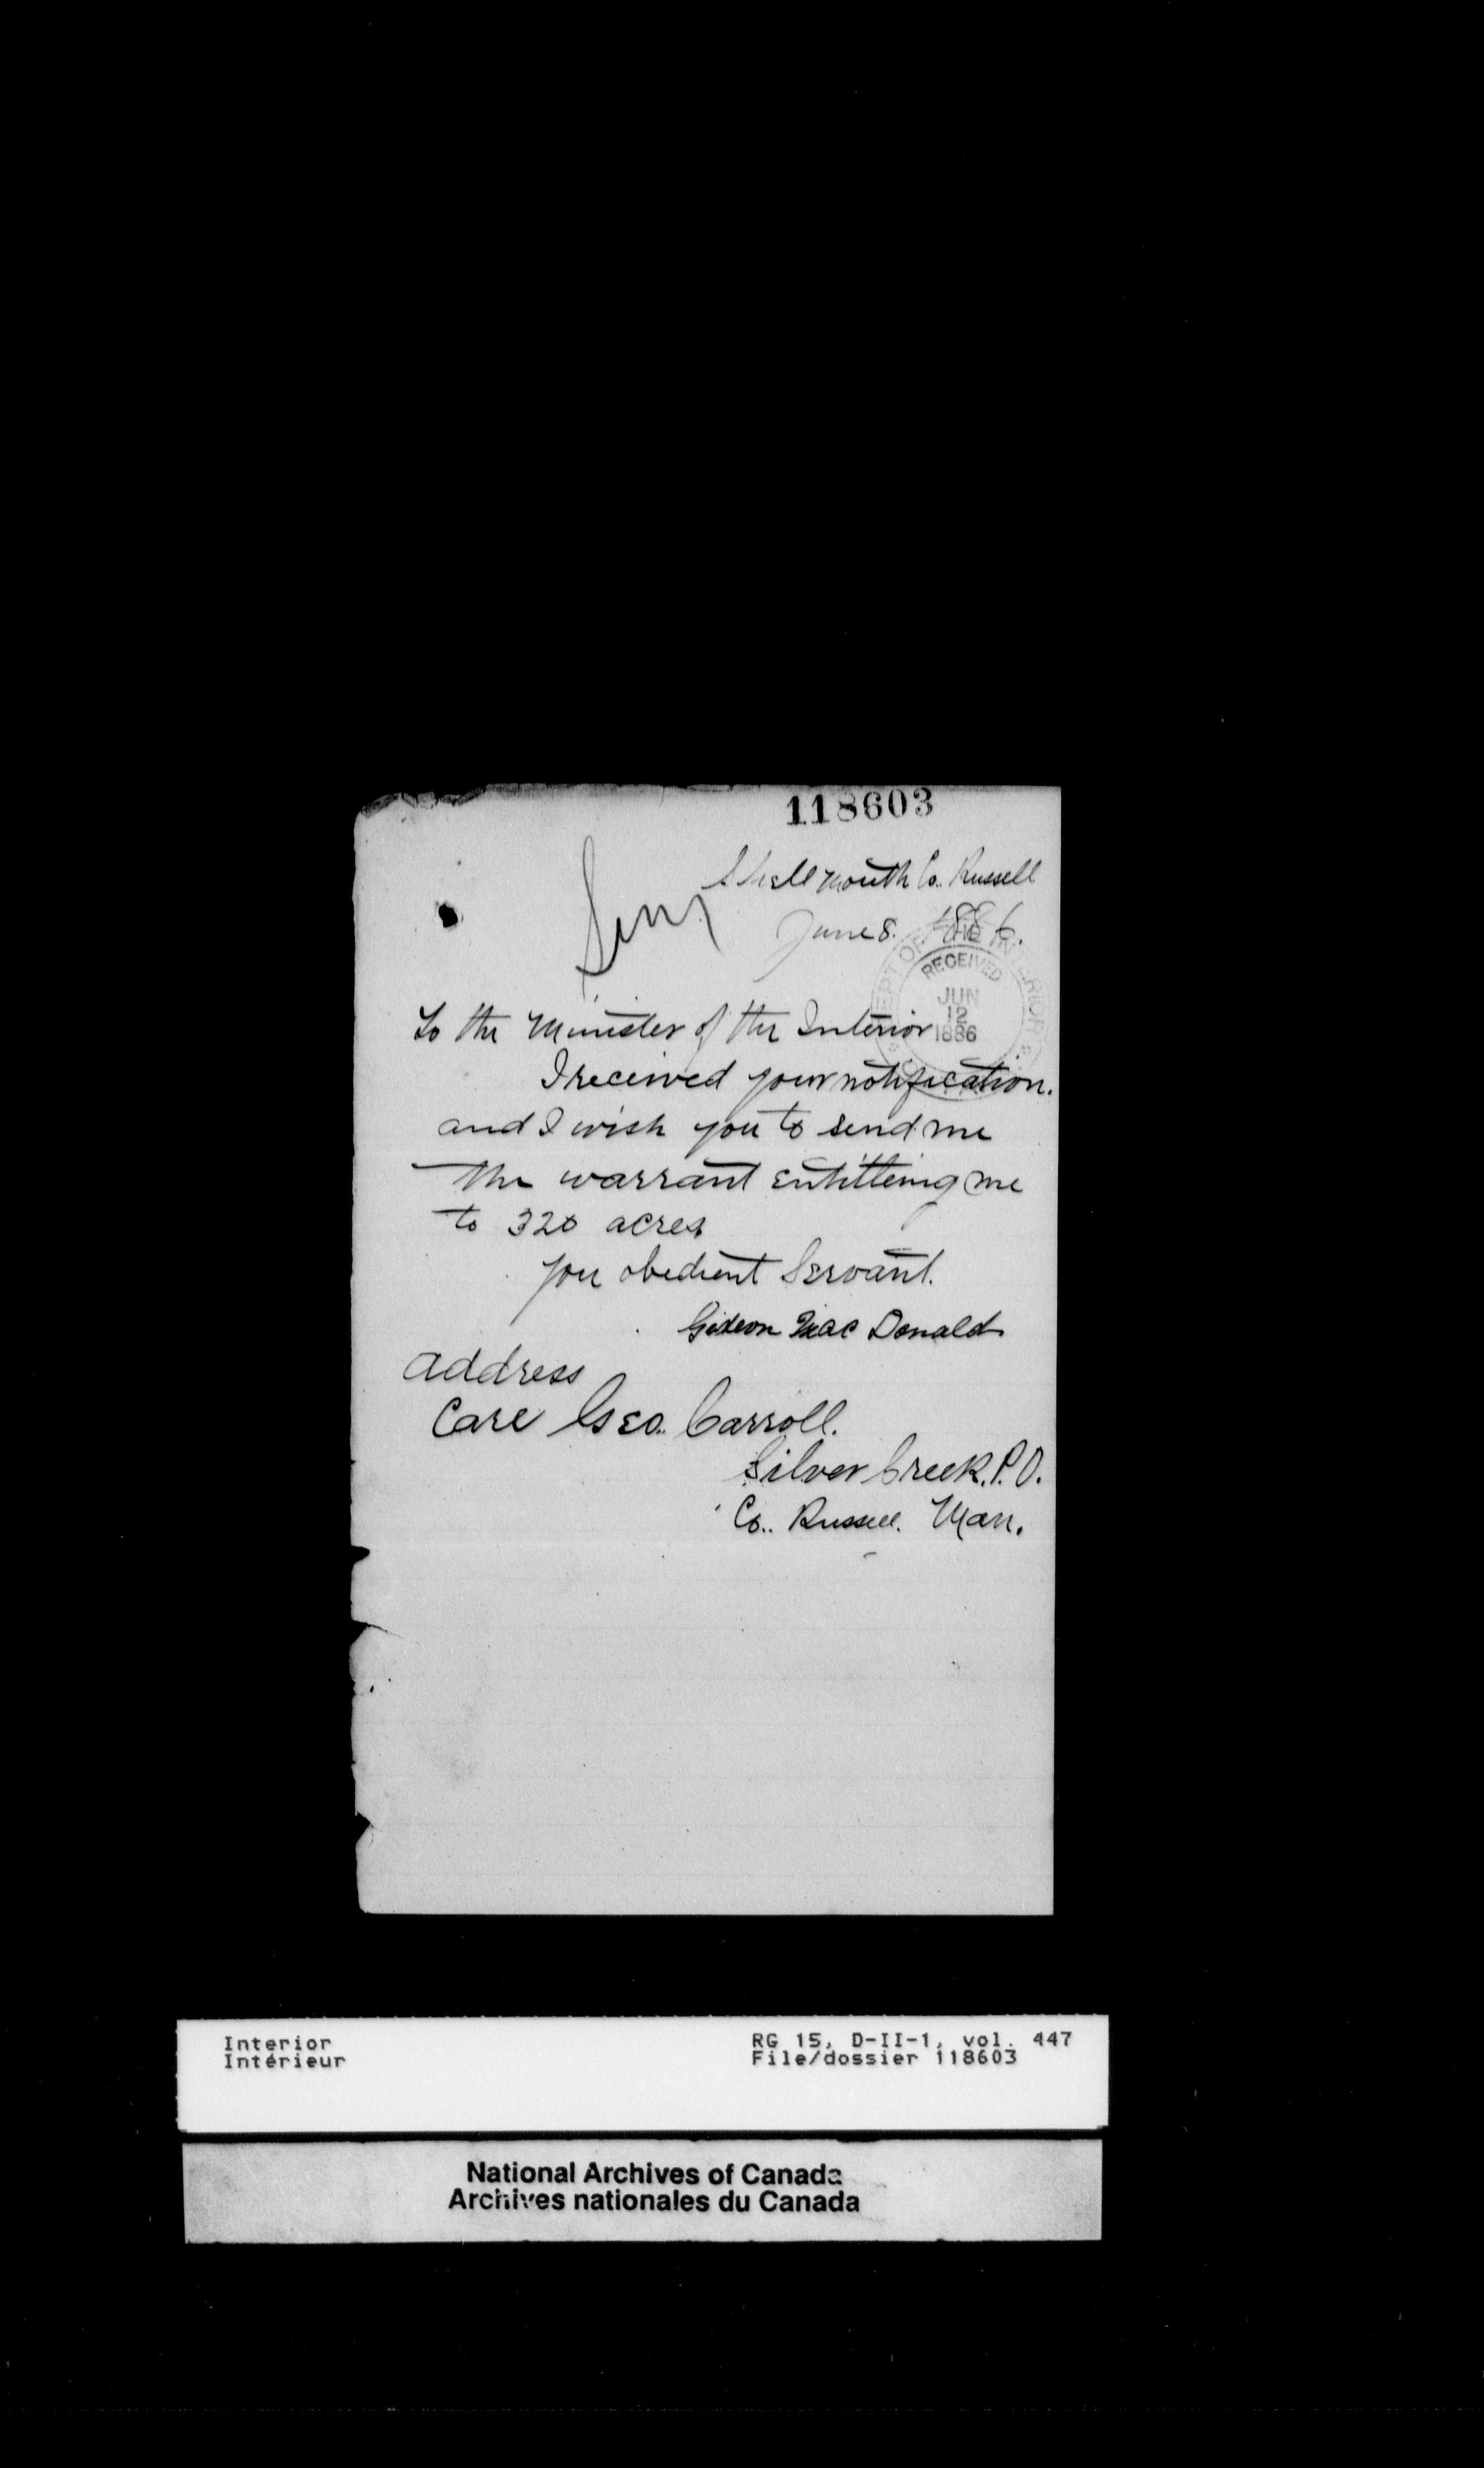 118603
Shellmouth Co. Russell
June 8. 1886.
DEPT OF THE INTERIOR
RECEIVED
JUN
12
1886
To the Minister of the Interior
I received your notification.
and I wish you to send me
the warrant entitteing me
to 320 acres
you obedient Servant.
Gideon Mac Donald
address
Care Geo. Carroll.
Silver Creek. P.O.
Co.. Russell. Man.
Interior
Intérieur
RG 15, D-II-1, vol. 447
File/dossier 118603
National Archives of Canada
Archives nationales du Canada